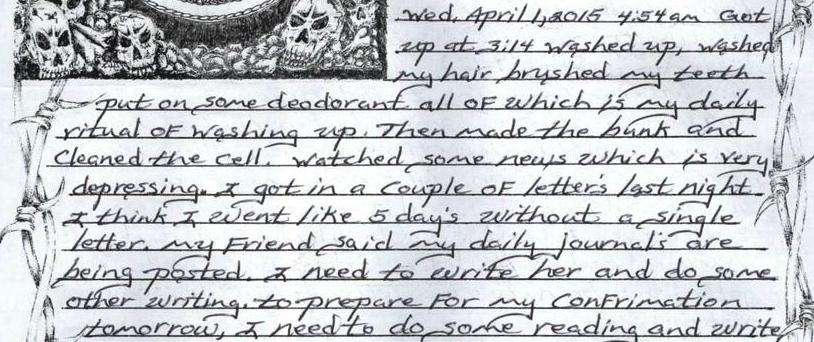 Wed, April 1, 2015 4:54am Got
up at 3:14 washed up, washed
my hair brushed my teeth
put on some deodorant all OF which is my daily
ritual OF washing up. Then made the bunk and
Cleaned the cell. Watched some news which is very
depressing. I got in a couple OF letter's last night
I think I went like 5 day's without a single
letter. My Friend said my daily journal's are
being posted. I need to write her and do some
other writing. to prepare For my ConFrimation
tomorrow, I need to do some reading and write